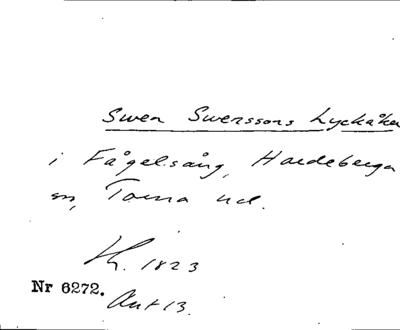 Swen Swenssons Lyckåker
i Fågelsång, Hardeberga
sn, Torna hd.
Kr. 1823
Nr 6272.
Ant 13.